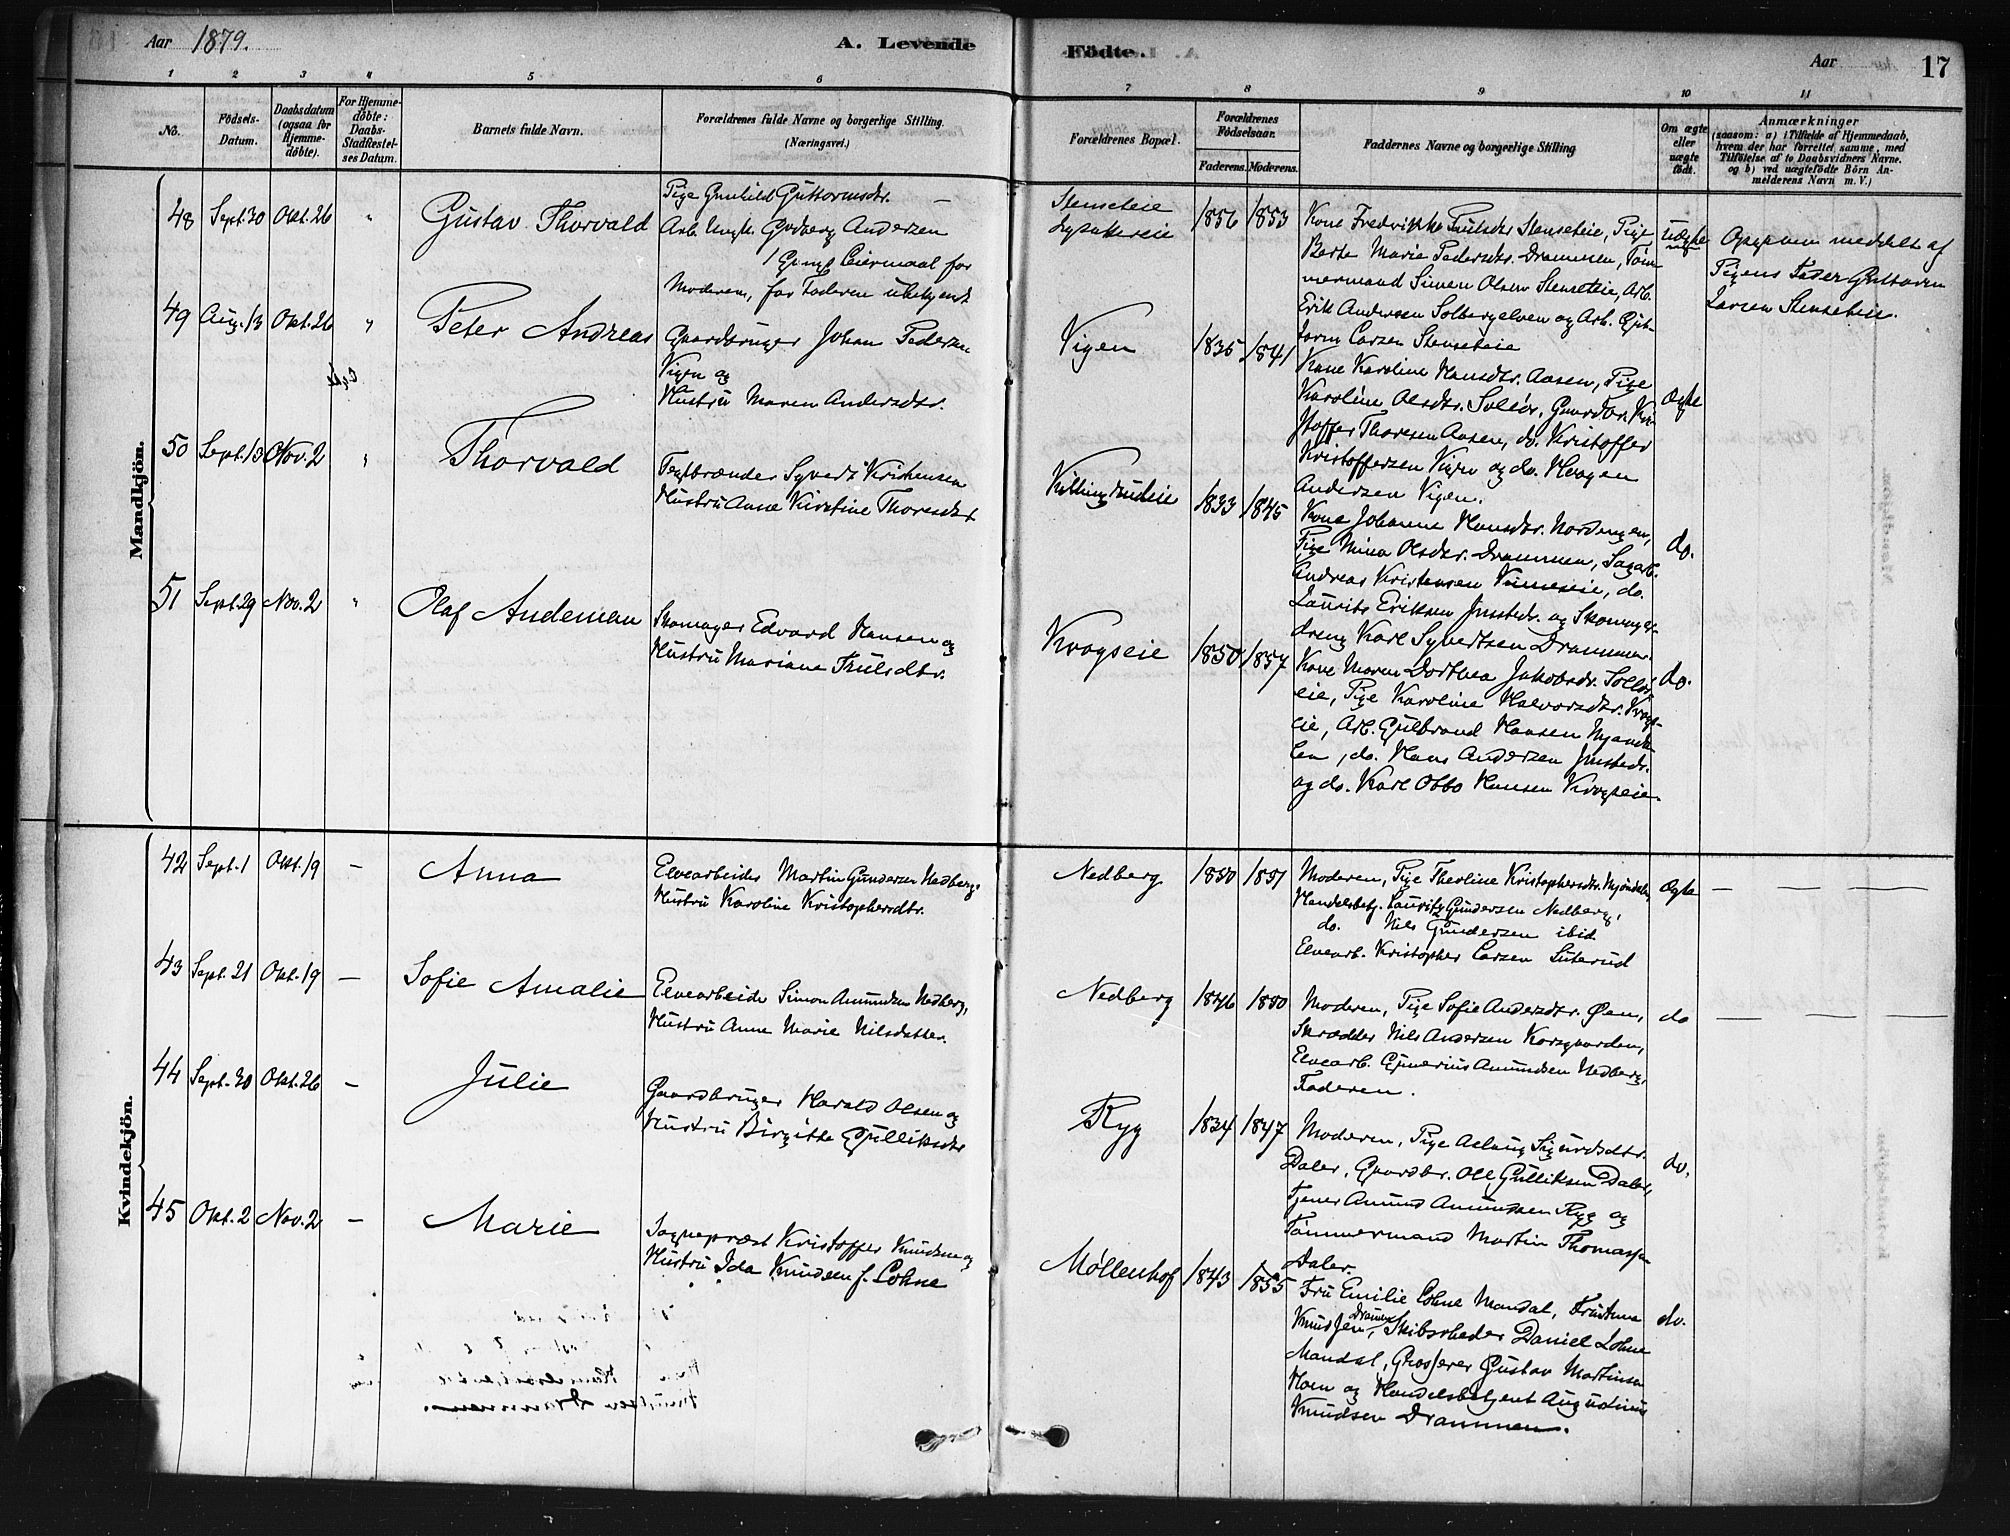 Aar 1879.
A. Levende
Födte.
Aar
17
1 2 3 4 5 6 7 8 9 10 11
No.
Födsels-
Datum.
Daabsdatum
(ogsaa for
Hjemme-
döbte).
For Hjemme-
döbte:
Daabs-
Stadfæstel-
ses Datum.
Barnets fulde Navn.
Forældrenes fulde Navne og borgerlige Stilling.
(Næringsvei.)
Forældrenes Bopæl.
Forældrenes
Födselsaar.
Faderens. Moderens.
Faddernes Navne og borgerlige Stilling
Om ægte
eller
uægte
födt.
Anmærkninger
(saasom: a) i Tilfælde af Hjemmedaab,
hvem der har forrettet samme, med
Tilföielse af to Daabsvidners Navne.
og b) ved uægtefödte Börn An-
melderens Navn m. V.)
Mandkjön.
48 Sept. 30 Okt. 26 "
Gustav Thorvald
Pige Gunhild Guttormsdtr.
Arb. Ungk. Andersen
Leiermaal for
Moderen, for Faderen ubekjendt
Stenseteie
1856 1853
Kone Fredrikke Trulsdtr Stenseteie, Pige
Berte Marie Pedersdtr. Drammen, Tøm-
mermand Simen Olsen Stenseteie, Arb.
Erik Andersen Solbergelven og Arb. Gut-
torm Larsen Stenseteie
uægte
Opgaven meddelt af
Pigens Fader Guttorm
Larsen Stenseteie.
49 Aug. 13 Okt. 26 "
Peter Andreas
Gaardbruger Johan Pedersen
Vigen og
Hustru Maren Andersdtr.
Vigen
1835 1841
Kone Karoline Hansdtr. Aasen, Pige
Karoline Olsdtr. Solløs, Gaardbr. Kri-
stoffer Thoresen Aasen, do. Kristoffer
Kristoffersen Vigen og do. Haagen
Andersen Vigen.
Ægte
50 Sept. 13 Nov. 2 "
Thorvald
Teglbrænder Syvert Kristensen
Hustru Anne Kirstine Thoresdtr
Killingrudeie
1833 1845
Kone Johanne Hansdtr. Nordengen,
Pige Mina Olsdtr. Drammen, Sagarb.
Andreas Kristensen Vimeseie, do.
Laurits Eriksen Jmstedr. og Skomager-
dreng Karl Syvertsen Drammen.
do.
51 Sept. 29 Nov. 2 "
Olaf Andeman
Skomager Edvard Hansen og
Hustru Mariane Trulsdtr.
Krogseie
1850 1857
Kone Maren Dorthea Jakobsdr. Solløs-
eie, Pige Karoline Halvorsdtr. Krogs-
eie, Arb. Gulbrand Hansen Mjøndа-
len, do. Hans Andersen Jmstedr.
og do. Karl Otto Hansen Krogseie.
do.
Kvindekjön.
42 Sept. 1 Okt. 19 —
Anna
Elvearbeider Martin Gundersen Nedberg,
Hustru Karoline Kristophersdtr.
Nedberg
1850 1851
Moderen, Pige Theoline Kristophersdtr. Mjøndalen,
Handelsbetj. Lauritz Gundersen Nedberg,
do. Nils Gundersen ibid
Elvearb. Kristopher Larsen Luterud
Ægte
43 Sept. 21 Okt. 19 —
Sofie Amalie
Elvearbeider Simon Amundsen Nedberg,
Hustru Anne Marie Nilsdatter.
Nedberg
1846 1850
Moderen, Pige Sofie Andersdtr. Øen,
Skrædder Nils Andersen Korsgaarden,
Elvearb. Gunerius Amundsen Nedberg,
Faderen.
do
44 Sept. 30 Okt. 26 —
Julie
Gaardbruger Harald Olsen og
Hustru Birgitte Gulliksdtr
Ryg
1834 1847
Moderen, Pige Aslaug Sigurdsdtr.
Daler, Gaardbr. Ole Gulliksen Daler,
Tjener Amund Amundsen Ryg og
Tømmermand Martin Thomassen
Daler.
do.
45 Okt. 2 Nov. 2 —
Marie
Sognepræst Kristoffer Knudsen og
Hustru Ida Knudsen f. Lohne
Møllenhof
1843 1855
Fru Emilie Lohne Mandal,
Knudsen, Drammen, Skibsrheder Daniel Lohne
Mandal, Grosserer Gustav Martinsen
Horn og Handelsbetjent Augustinus
Knudsen Drammen.
do.